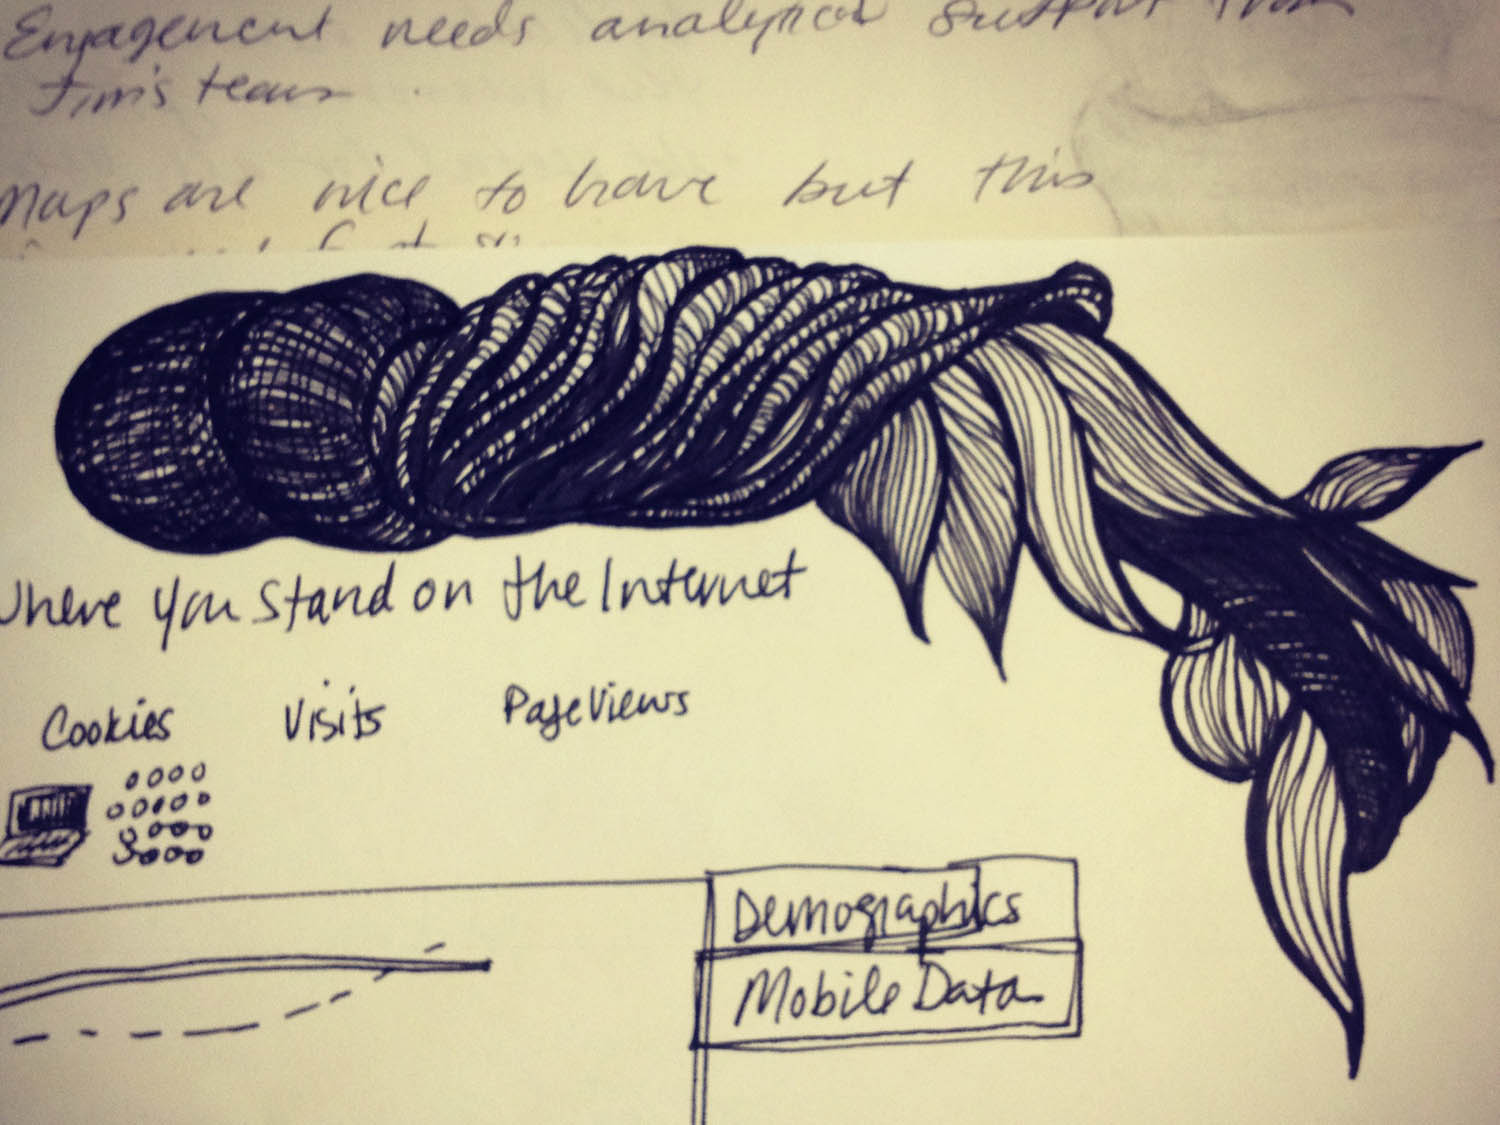 Engagement needs analytical support from
Jim's team.
Maps are nice to have but this
Where you Stand on the Internet
Cookies Visits Page Views
Demographics
Mobile Data